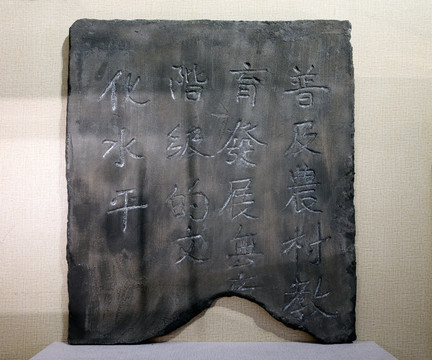 普及農村教
育發展無产
階級的文
化水平